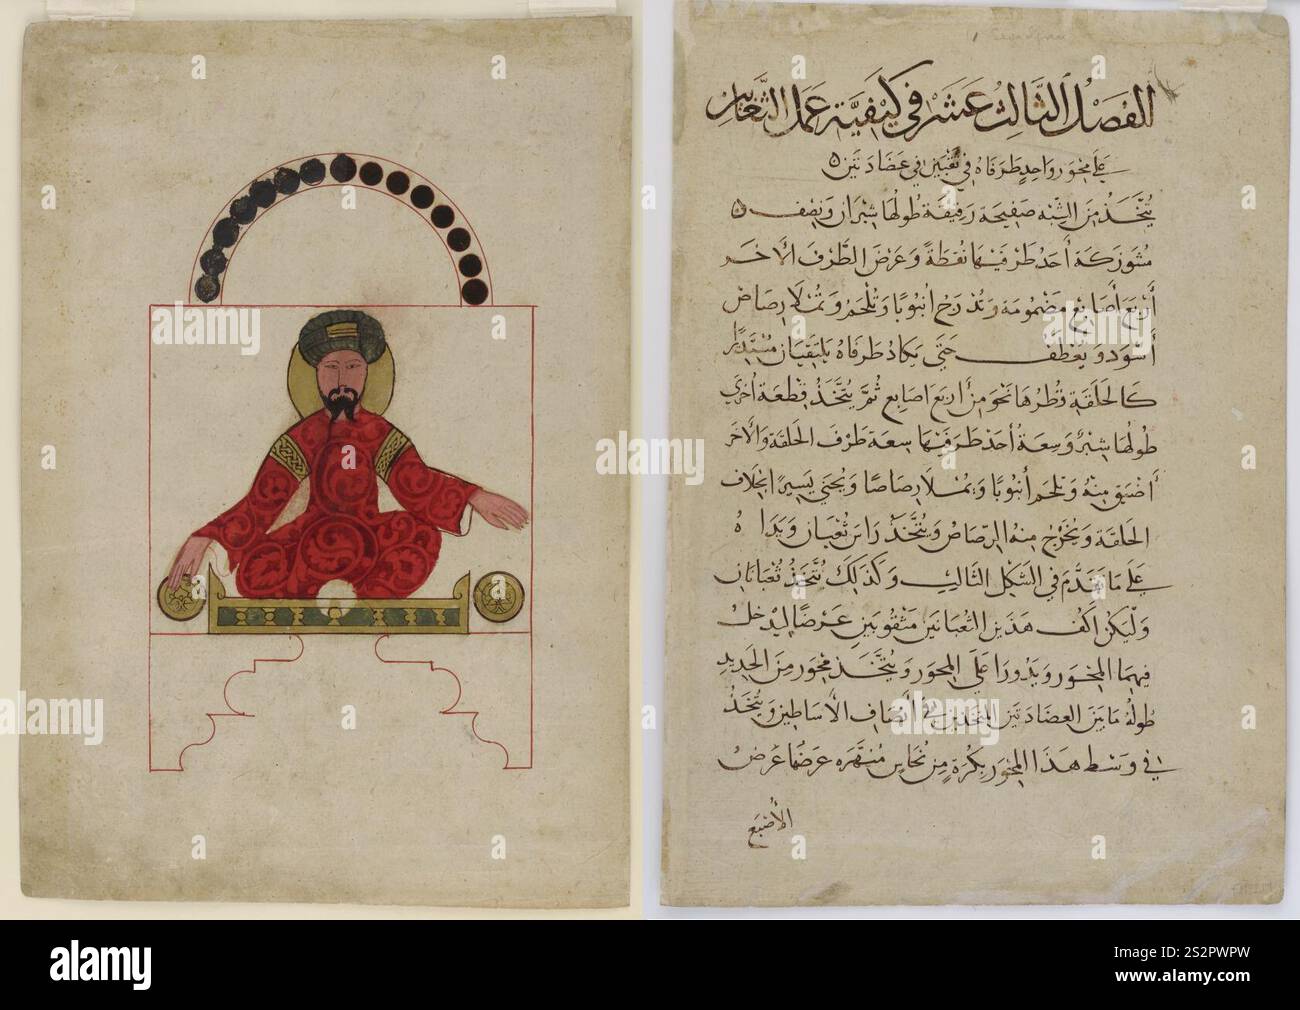 الفَصْلُ الثَّالِثَ عَشَرَ في كَيْفِيَّةِ عَمَلِ الثَّعَابِينِ
عَلَى مِحْوَرٍ وَاحِدٍ طَرَفَاهُ فِي ثُقْبَيْنِ فِي عَضَادَتَيْنِ ٥
يُتَّخَذُ مِنَ الشَّبَهِ صَفِيحَة رَقِيقَة طُولُهَا شِبْرَانِ وَنِصْف ٥
أَحَدُ طَرَفَيْهَا نُقْطَةً وَعَرْضَ الطَّرَفِ الآخَر
أَرْبَعِ أَصَابِعَ مَضْمُومَةٍ وَتُدْرَجُ أُنْبُوبًا وَتُلْحَمُ وَتُمْلَأُ رَصَاصًا
أَسْوَدَ وَيُعْطَفُ حَتَّى يَكَادُ طَرَفَاهُ يَلْتَقِيَانِ مُسْتَدِيرًا
كَالحَلْقَةِ قُطْرُهَا نَحْوٌ مِنْ أَرْبَعِ أَصَابِعَ ثُمَّ يُتَّخَذُ قِطْعَة أُخْرَى
طُولُهَا شِبْرٌ وَسِعَةُ أَحَدِ طَرَفَيْهَا سِعَة طَرَفِ الحَلْقَةِ وَالآخَر
أَضْيَقُ مِنْهُ وَتُلْحَمُ أُنْبُوبًا وَيُمْلَأُ رَصَاصًا وَيُحْنَى يَسِيرًا بِخِلَافِ
الحَلْقَةِ وَيُخْرَجُ مِنْهُ الرَّصَاصُ وَيُتَّخَذُ رَأْسُ ثُعْبَانٍ وَيَدَاهُ
عَلَى مَا تَقَدَّمَ فِي الشَّكْلِ الثَّالِثِ وَكَذَلِكَ يُتَّخَذُ ثُعْبَانَانِ
وَلْيَكُنْ أَكُفُّ هَذَيْنِ الثُّعْبَانَيْنِ مَثْقُوبَيْنِ عَرْضًا لِيَدْخُلَ
فِيهِمَا المِحْوَرُ وَيَدُورَا عَلَى المِحْوَرِ وَيُتَّخَذُ مِحْوَرٌ مِنَ الحَدِيدِ
طُولُهُ مَا بَيْنَ العَضَادَتَيْنِ المُتَّخَذَيْنِ فِي أَنْصَافِ الأَسَاطِينِ وَيُتَّخَذُ
فِي وَسَطِ هَذَا المِحْوَرِ بَكْرَةٌ مِنْ نُحَاسٍ عَرْضُهَا عَرْضُ
الأَصْبَعِ
a
alamy
alamy
Image ID: 2S2PWPW
www.alamy.com